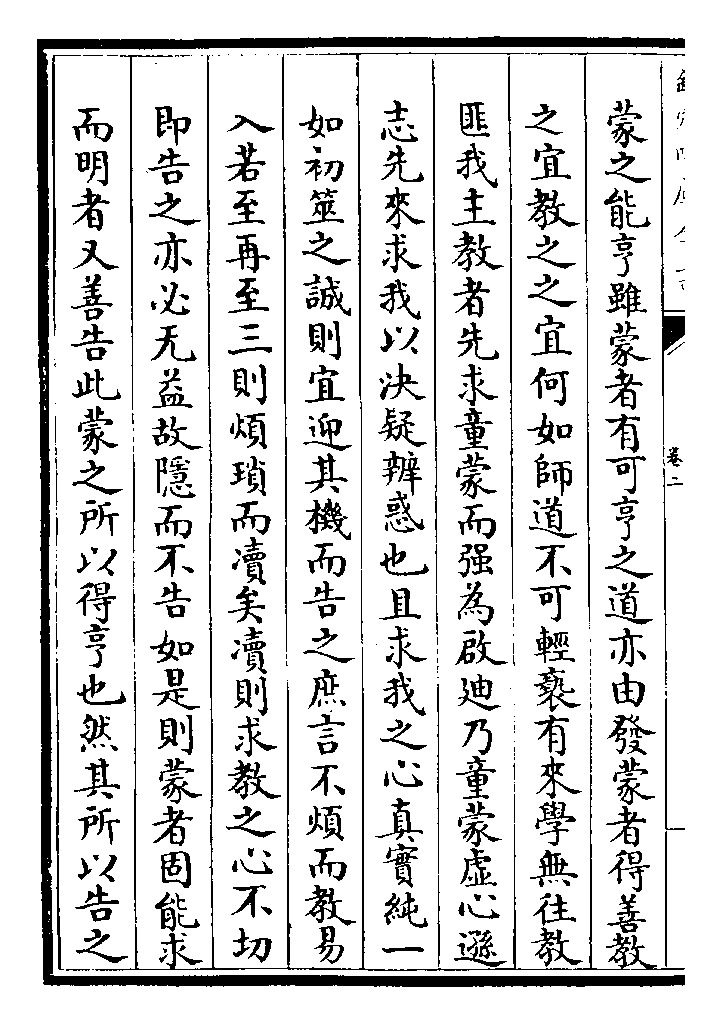 欽定四庫全書
卷二
蒙之能亨雖蒙者有可亨之道亦由發蒙者得善教
之宜教之之宜何如師道不可輕褻有來學無往教
匪我主教者先求童蒙而强為啟廸乃童蒙虛心遜
志先來求我以決疑辨惑也且求我之心真實純一
如初筮之誠則宜迎其機而告之庶言不煩而教易
入若至再至三則煩瑣而瀆矣瀆則求教之心不切
即告之亦必无益故隱而不告如是則蒙者固能求
而明者又善告此蒙之所以得亨也然其所以告之